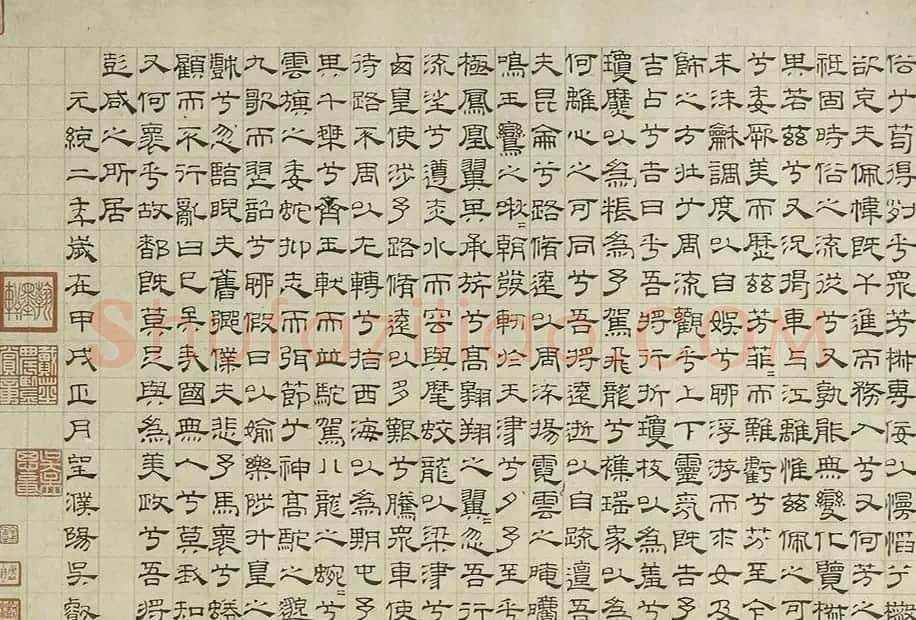 俗兮苟得列乎眾芳椒專佞以慢慆兮樧
欲充夫佩幃既干進而務入兮又何芳之
祗固時俗之流從兮又孰能無變化覽椒
其若茲兮又況揭車与江離惟茲佩之可
兮委厥美而歷茲芳菲=而難虧兮芬至今
未沬龢調度以自娛兮聊浮游而求女及
飾之方壯兮周流觀乎上下靈氛既告予
吉占兮吉日乎吾將行折瓊枝以為羞兮
瓊爢以為粻為予駕飛龍兮襍瑤象以為
何離心之可同兮吾將遠逝以自疏邅吾
夫昆侖兮路脩遠以周流揚霓雲之晻靄
鳴玉鸞之啾=朝發軔於天津兮夕予至乎
極鳳凰翼其承旂兮高翱翔之翼=忽吾行
流沙兮遵赤水而容與麾蛟龍以梁津兮
西皇使涉予路脩遠以多艱兮騰眾車使
待路不周以左轉兮指西海以為期屯予
其千乘兮齊玉軑而並駝駕八龍之婉=兮
雲旗之委蛇抑志而弭節兮神高駝之邈
九歌而舞韶兮聊假日以媮樂陟升皇之
戲兮忽臨睨夫舊鄉僕夫悲予馬懷兮蜷
顧而不行亂曰已矣哉國無人兮莫我知
又何懷乎故都既莫足與為美政兮吾將
彭咸之所居
元統二年歲在甲戌正月望濮陽吳叡
Shufaziliao.COM